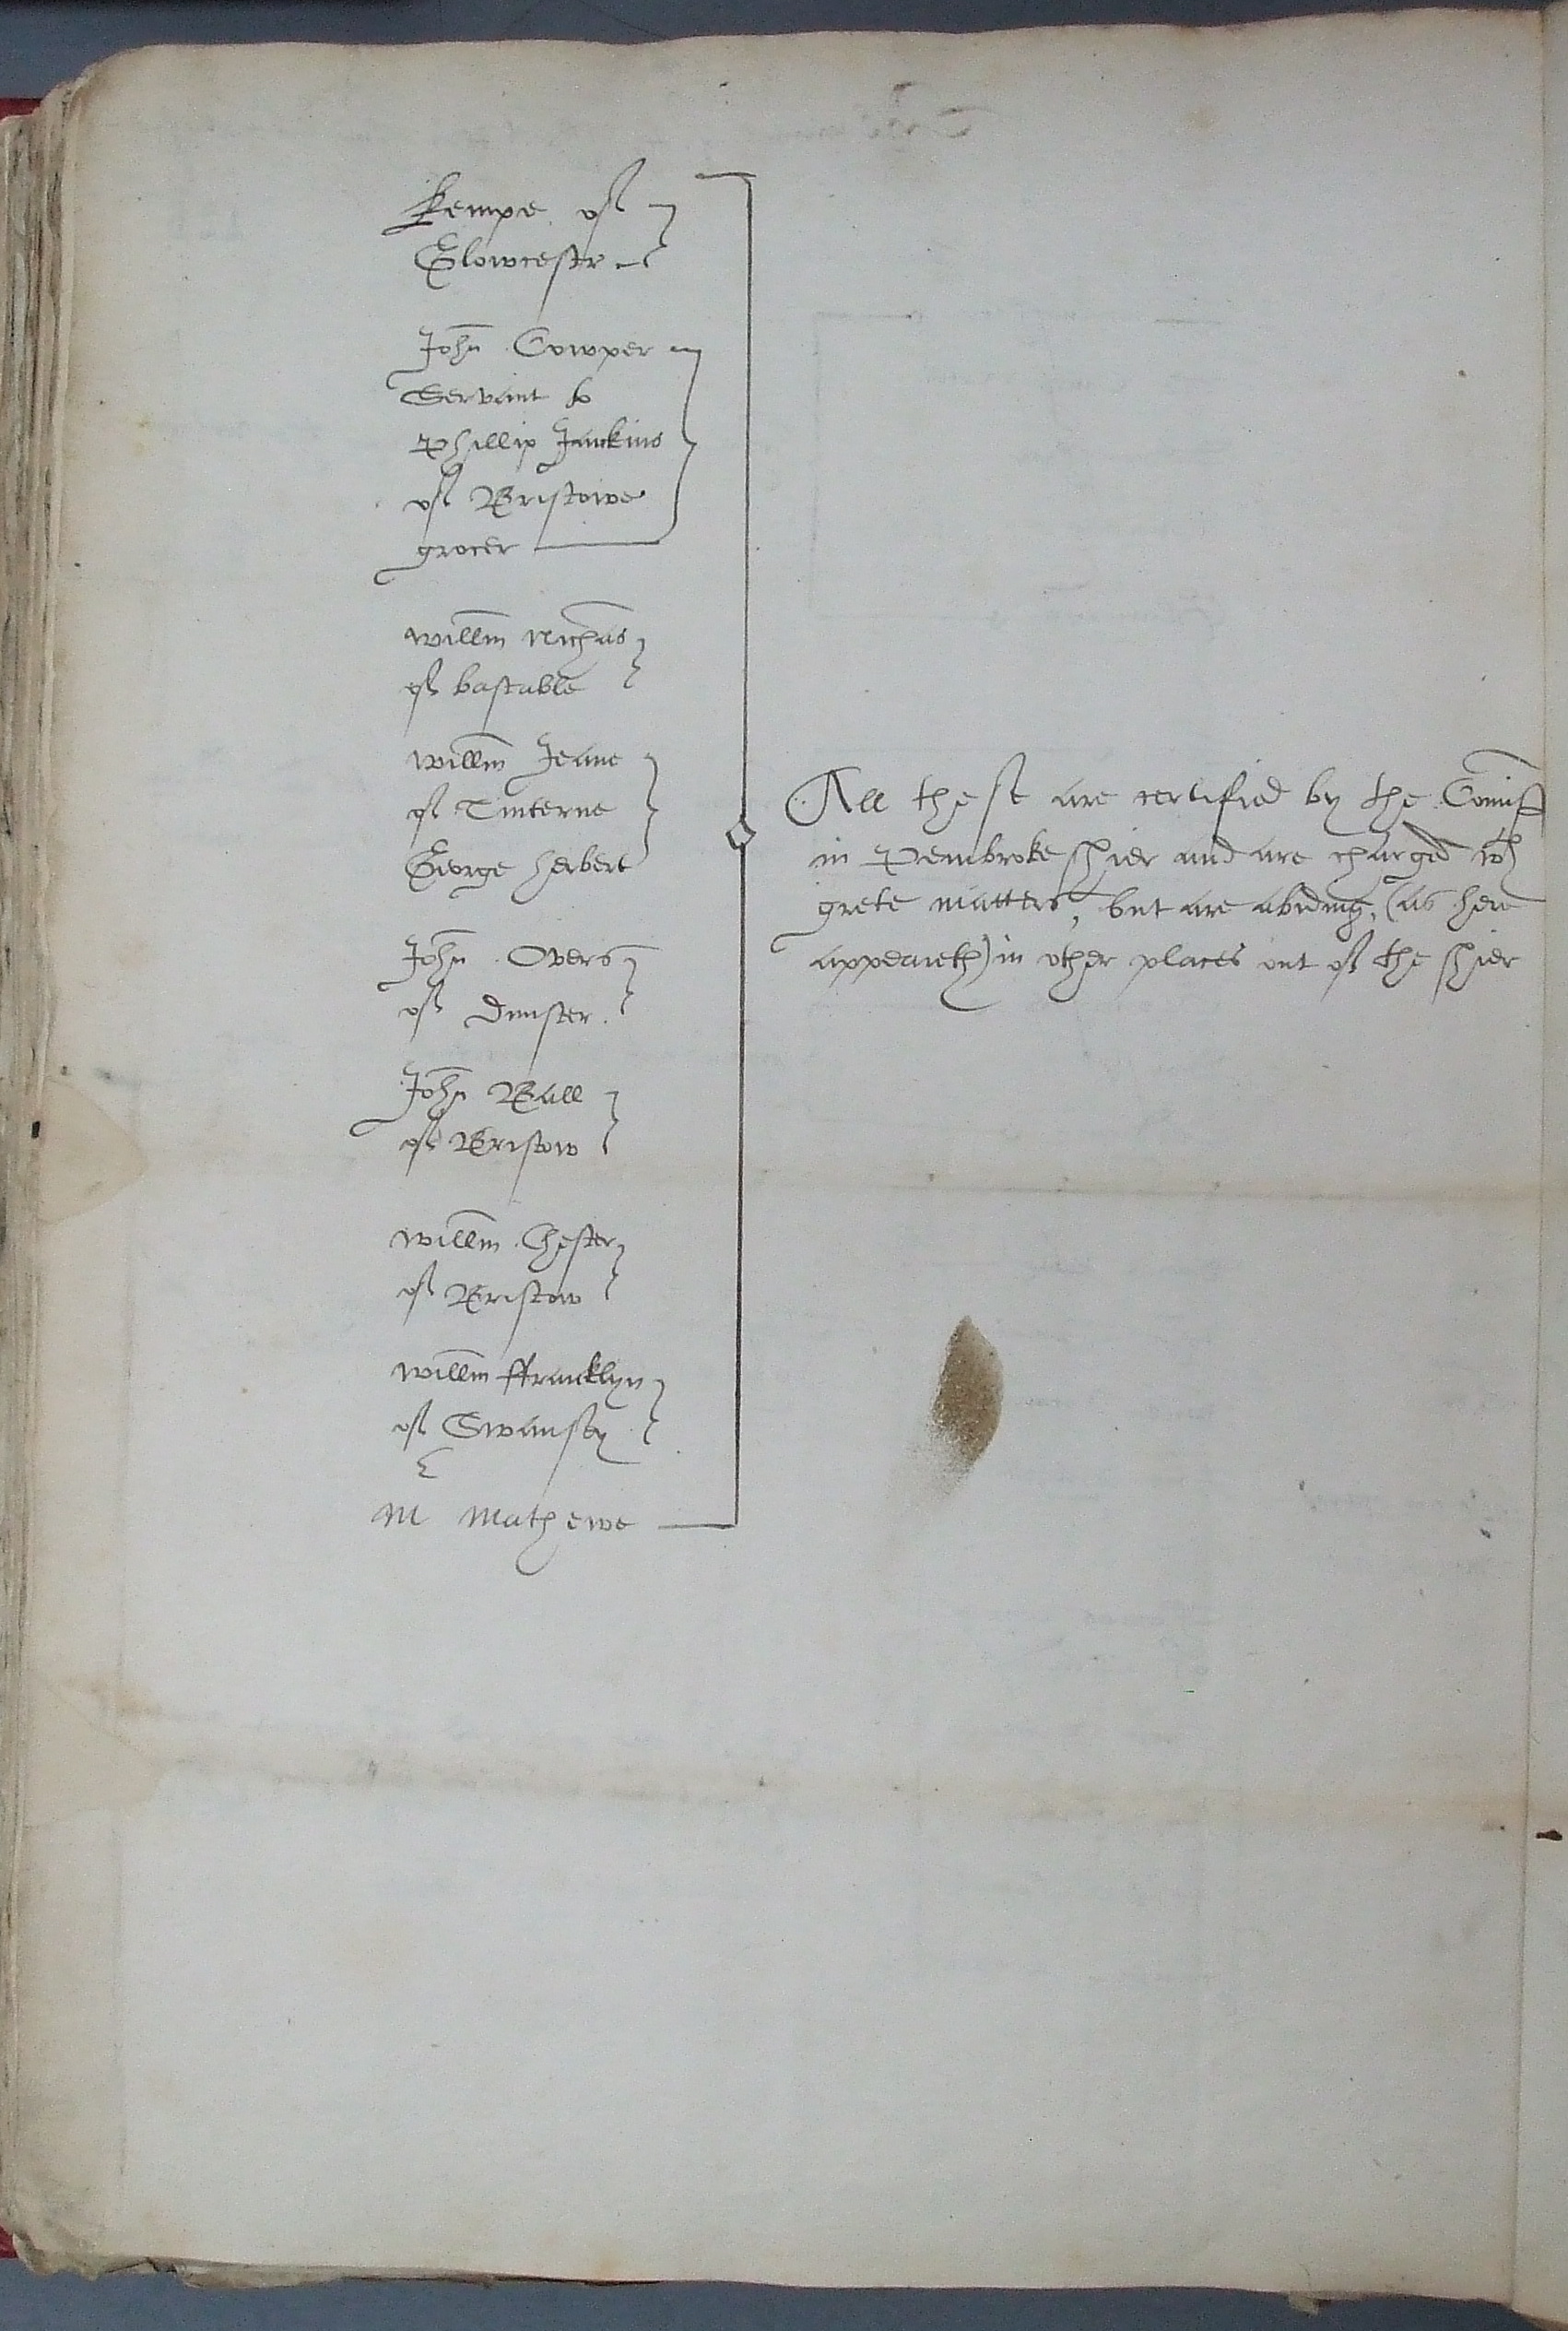 Kempe of
Glowcestr
John Cowper
Servant to
Phillip Jankins
of Bristowe
grocer
Willm Nichas
of bastable
Willm Jeane
of Tinterne
George Herbert
John Overs
of Dunster
John Ball
of Bristow
Willm Chester
of Bristow
Willm ffranklyn
of Swansey
M Mathewe
All these are certified by the Comiss
in Pembrokeshier and are charged wth
grete matters, but are abiding, (as here
appeareth) in other places out of the shier